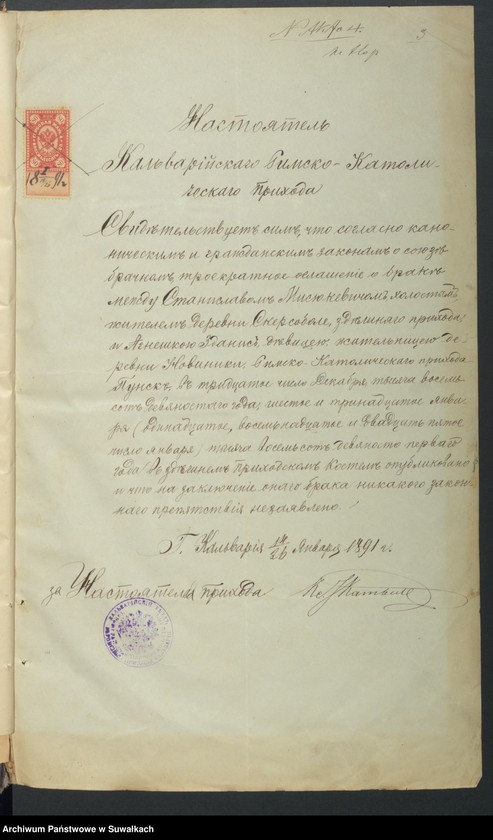 N Акта 4.
3
18 91 г
Настоятель
Кальварійскаго Римско-Католи-
ческаго прихода
Свидѣтельствуетъ симъ, что согласно кано-
ническимъ и гражданскимъ законамъ о союзѣ
брачномъ троекратное оглашеніе о бракѣ
между Станиславомъ Мисюкевичомъ холостымъ
жителемъ деревни Скерсоболе, здѣшняго прихода
и Аг­нешкою Зданисъ, дѣвицею, жительницею де-
ревни Новиники, Римско-Католическаго прихода
Пунскъ, въ тридцатое число Декабря, тысяча восемь-
сотъ девяностаго года, шестое и тринадцатое янва-
ря (одинадцатое, восемьнадцатое и двадцать пятое
число января) тысяча восемьсотъ девяносто перваго
года въ здѣшнемъ приходскомъ костелѣ опубликовано
и что на заключеніе онаго брака никакого закон-
наго препятствія незаявлено.
Г. Кальварія 14/26 Января 1891 г.
за Настоятеля прихода Кс.
Archiwum Państwowe w Suwałkach